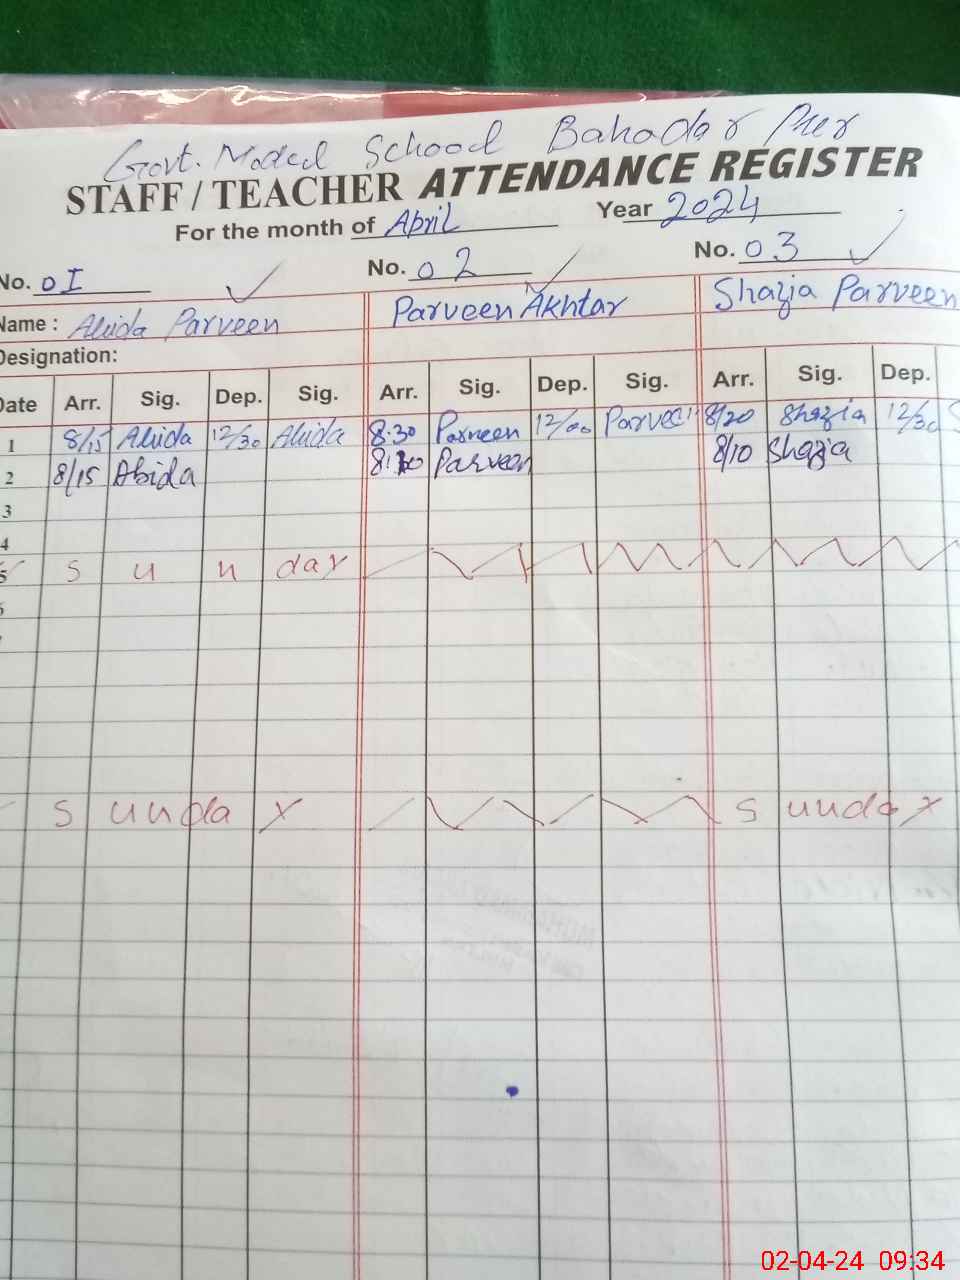 Govt. Model School Bahadar Pur
STAFF / TEACHER ATTENDANCE REGISTER
For the month of April Year 2024
No. 01 No. 02 No. 03
Name : Abida Parveen Parveen Akhtar Shazia Parveen
Designation:
Date Arr. Sig. Dep. Sig. Arr. Sig. Dep. Sig. Arr. Sig. Dep.
1 8/15 Abida 12/30 Abida 8:30 Parveen 12/00 Parveen 8/20 Shazia 12/30
2 8/15 Abida Parveen 8/10 Shazia
3
4
5 Sunday
Sunday Sunday
02-04-24 09:34